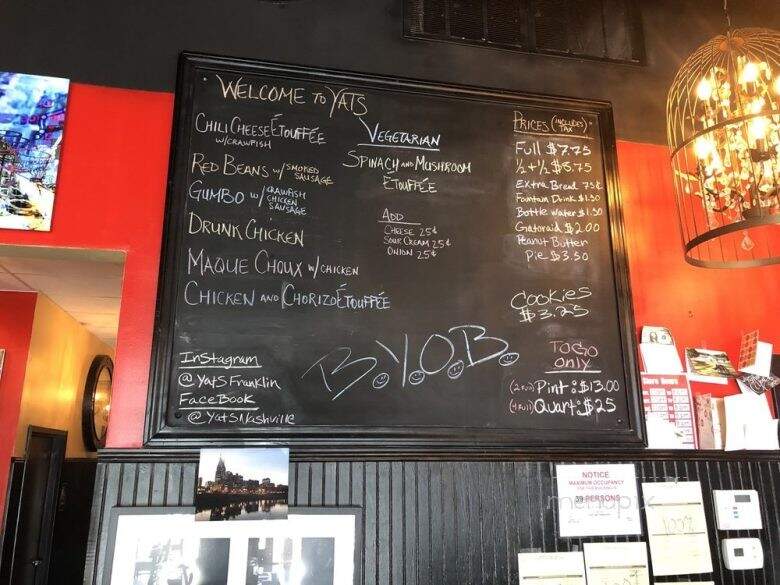 WELCOME TO YATS
CHILI CHEESE ÉTOUFFÉE
W/CRAWFISH
RED BEANS W/ SMOKED
SAUSAGE
GUMBO W/ CRAWFISH
CHICKEN
SAUSAGE
DRUNK CHICKEN
MAQUE CHOUX W/CHICKEN
CHICKEN AND CHORIZO ÉTOUFFÉE
VEGETARIAN
SPINACH AND MUSHROOM
ÉTOUFFÉE
ADD
CHEESE 25¢
SOUR CREAM 25¢
ONION 25¢
PRICES (INCLUDES
TAX)
Full $7.75
½ + ½ $8.75
Extra Bread 75¢
Fountain Drink $1.50
Bottle Water $1.50
Gratoraid $2.00
Peanut Butter
Pie $3.50
COOKIES
$3.25
TO GO
ONLY
(2 Full) Pint: $13.00
(4 Full) Quart: $25
B.Y.O.B.
InStagram
@YatS Franklin
FaceBook
@YatSNashville
NOTICE
MAXIMUM OCCUPANCY
39 PERSONS
menupix
100%